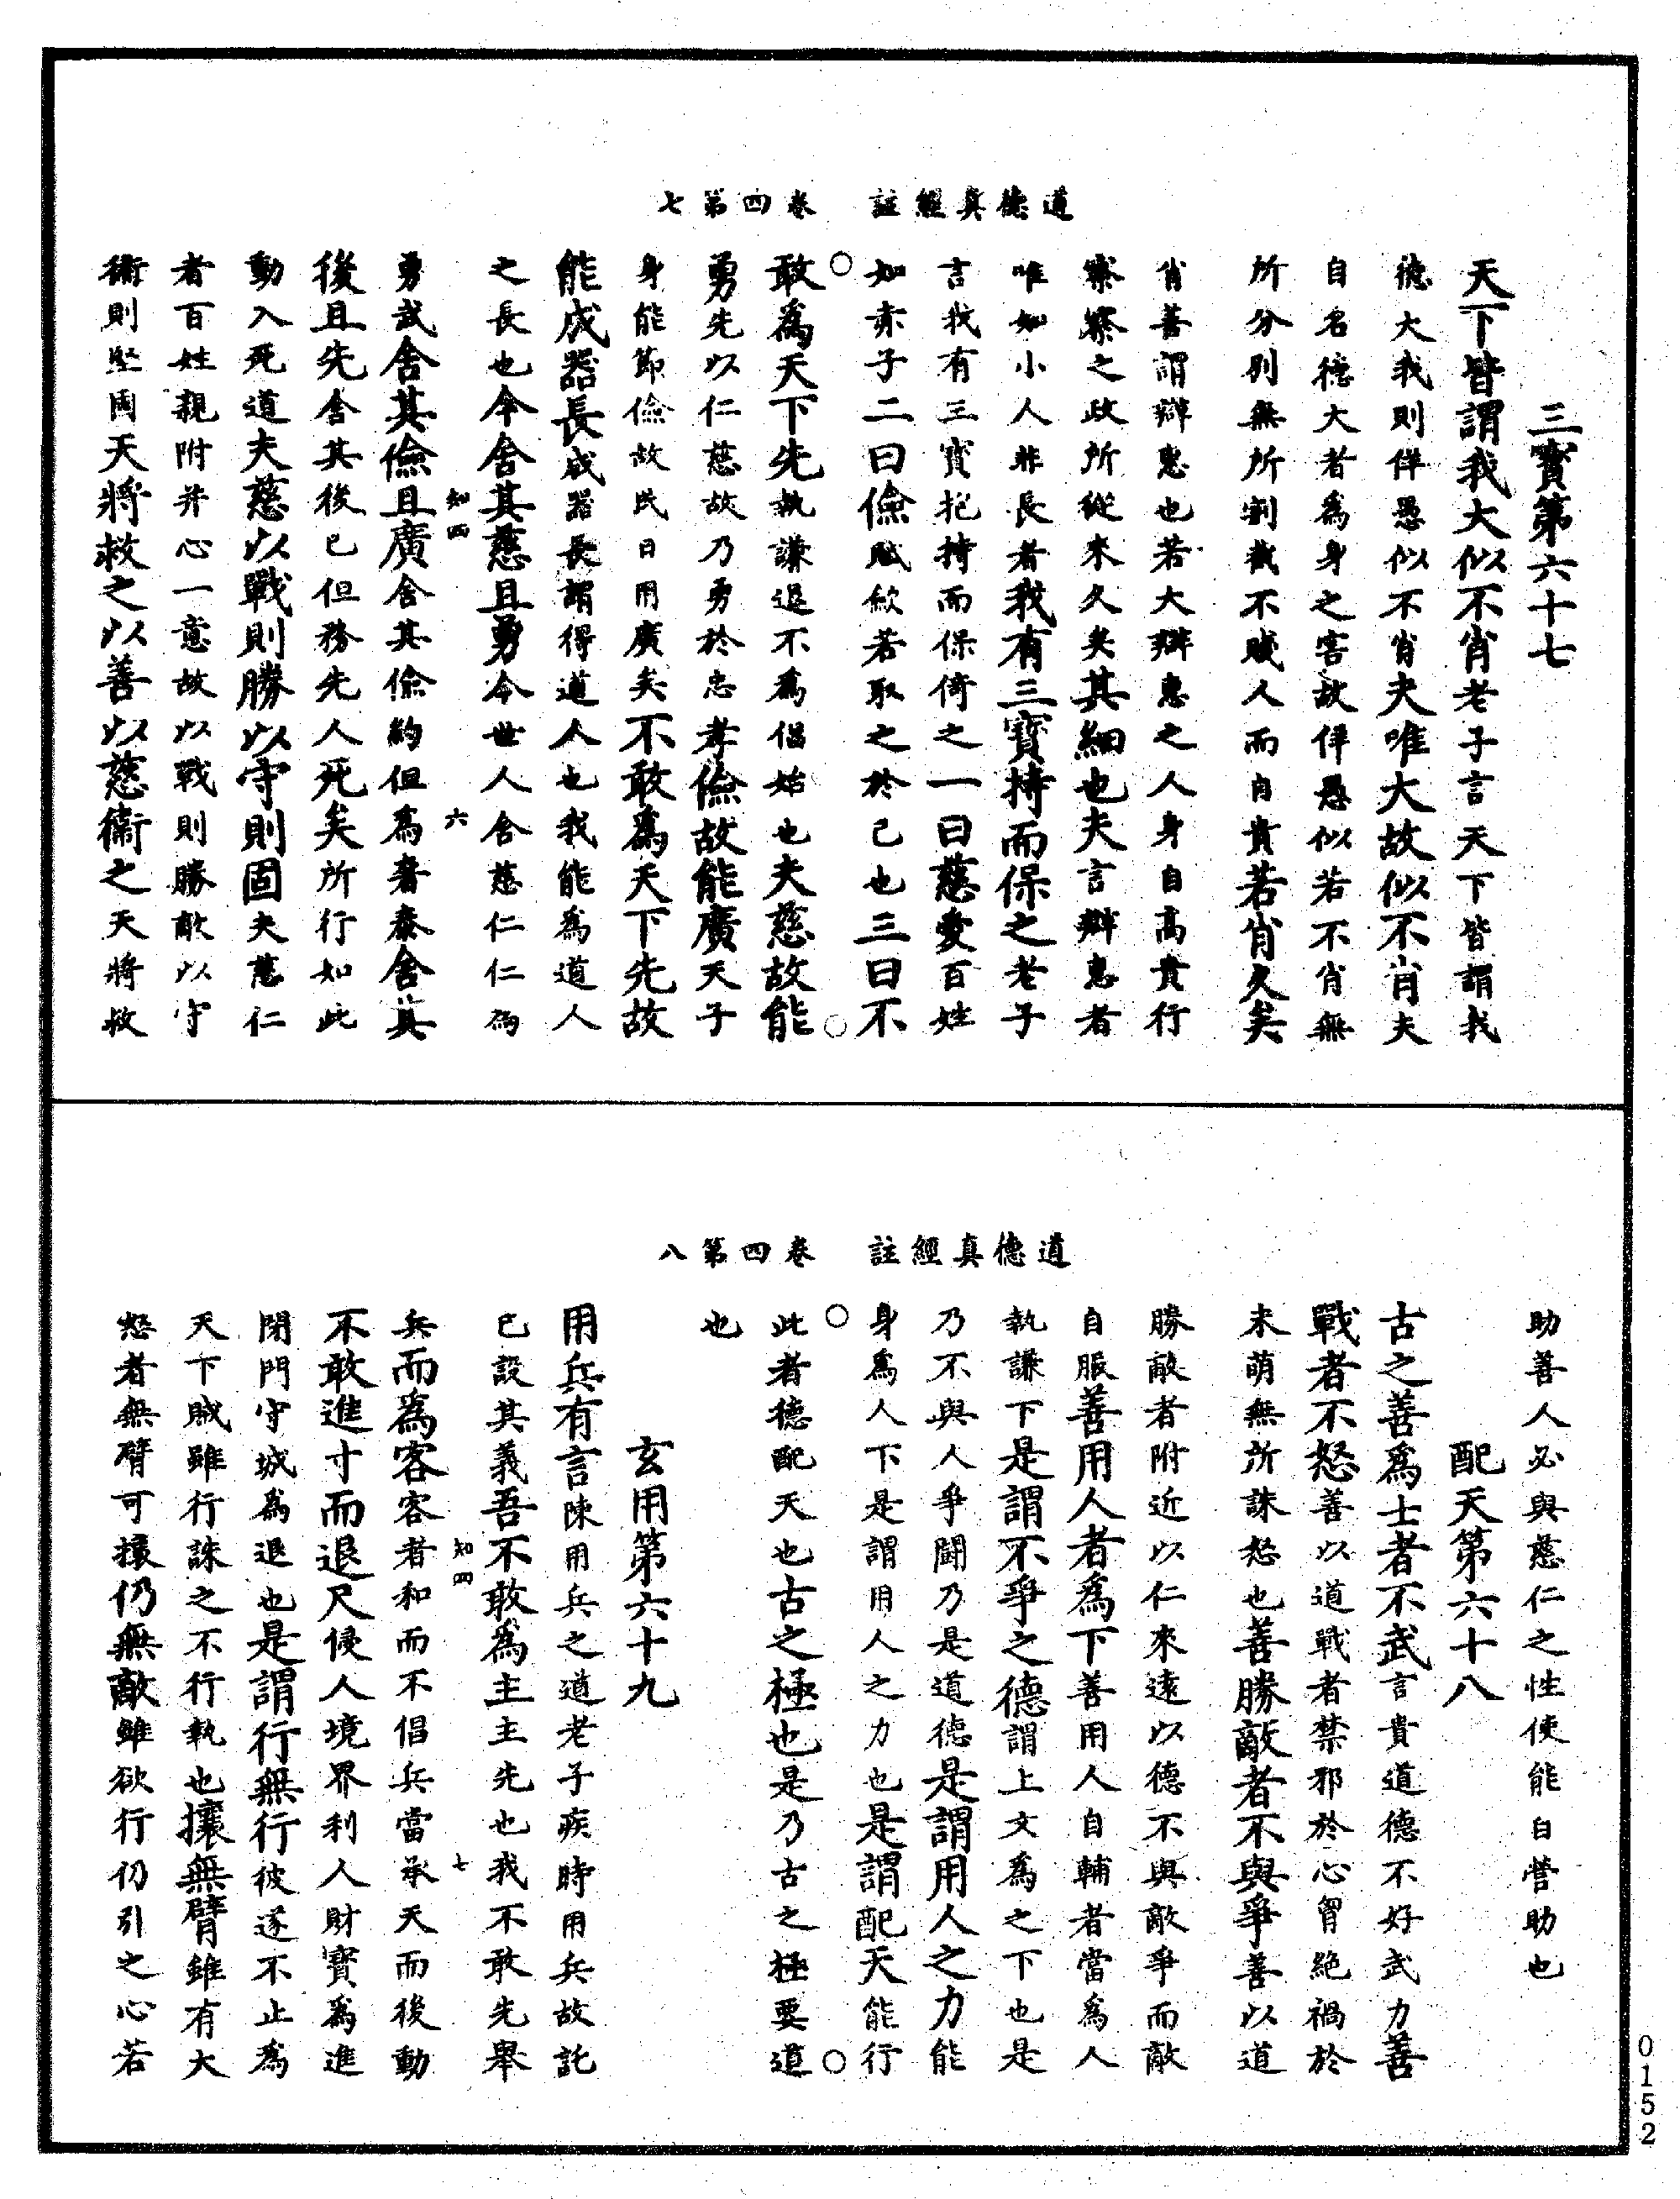 道德真經註　卷四第七
三寶第六十七
天下皆謂我大似不肖老子言天下皆謂我
德大我則佯愚似不肖夫唯大故似不肖夫
自名德大者為身之害故佯愚似若不肖無
所分別無所割截不賤人而自貴若肖久矣
肖善謂辯惠也若大辯惠之人身自高貴行
察察之政所從來久矣其細也夫言辯惠者
唯如小人非長者我有三寶持而保之老子
言我有三寶抱持而保倚之一曰慈愛百姓
如赤子二曰儉賦斂若取之於己也三曰不
敢為天下先執謙退不為倡始也夫慈故能
勇先以仁慈故乃勇於忠孝儉故能廣天子
身能節儉故民日用廣矣不敢為天下先故
能成器長成器長謂得道人也我能為道人
之長也今舍其慈且勇今世人舍慈仁仁但
知四　六
勇武舍其儉且廣舍其儉約但為奢泰舍其
後且先舍其後己但務先人死矣所行如此
動入死道夫慈以戰則勝以守則固夫慈仁
者百姓親附并心一意故以戰則勝敵以守
衛則堅固天將救之以善以慈衛之天將救
道德真經註　卷四第八
助善人必與慈仁之性使能自營助也
配天第六十八
古之善為士者不武言貴道德不好武力善
戰者不怒善以道戰者禁邪於心胷絕禍於
未萌無所誅怒也善勝敵者不與爭善以道
勝敵者附近以仁來遠以德不與敵爭而敵
自服善用人者為下善用人自輔者當為人
執謙下是謂不爭之德謂上文為之下也是
乃不與人爭鬪乃是道德是謂用人之力能
身為人下是謂用人之力也是謂配天能行
此者德配天也古之極也是乃古之極要道
也
玄用第六十九
用兵有言陳用兵之道老子疾時用兵故託
已設其義吾不敢為主主先也我不敢先舉
知四　七
兵而為客客者和而不倡兵當承天而後動
不敢進寸而退尺侵人境界利人財寶為進
閉門守城為退也是謂行無行彼遂不止為
天下賊雖行誅之不行執也攘無臂雖有大
怒者無臂可攘仍無敵雖欲行仍引之心若
0152